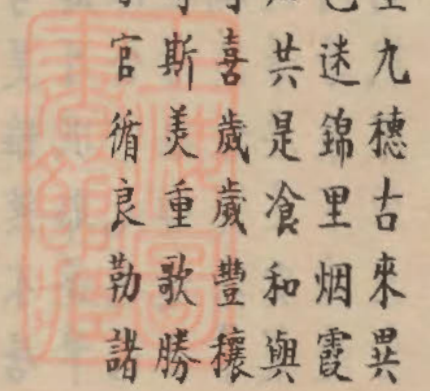 九穗古來異
迷錦里烟霞
共是飡和與
喜歲歲豐穰
斯美重歌勝
官循良勒諸